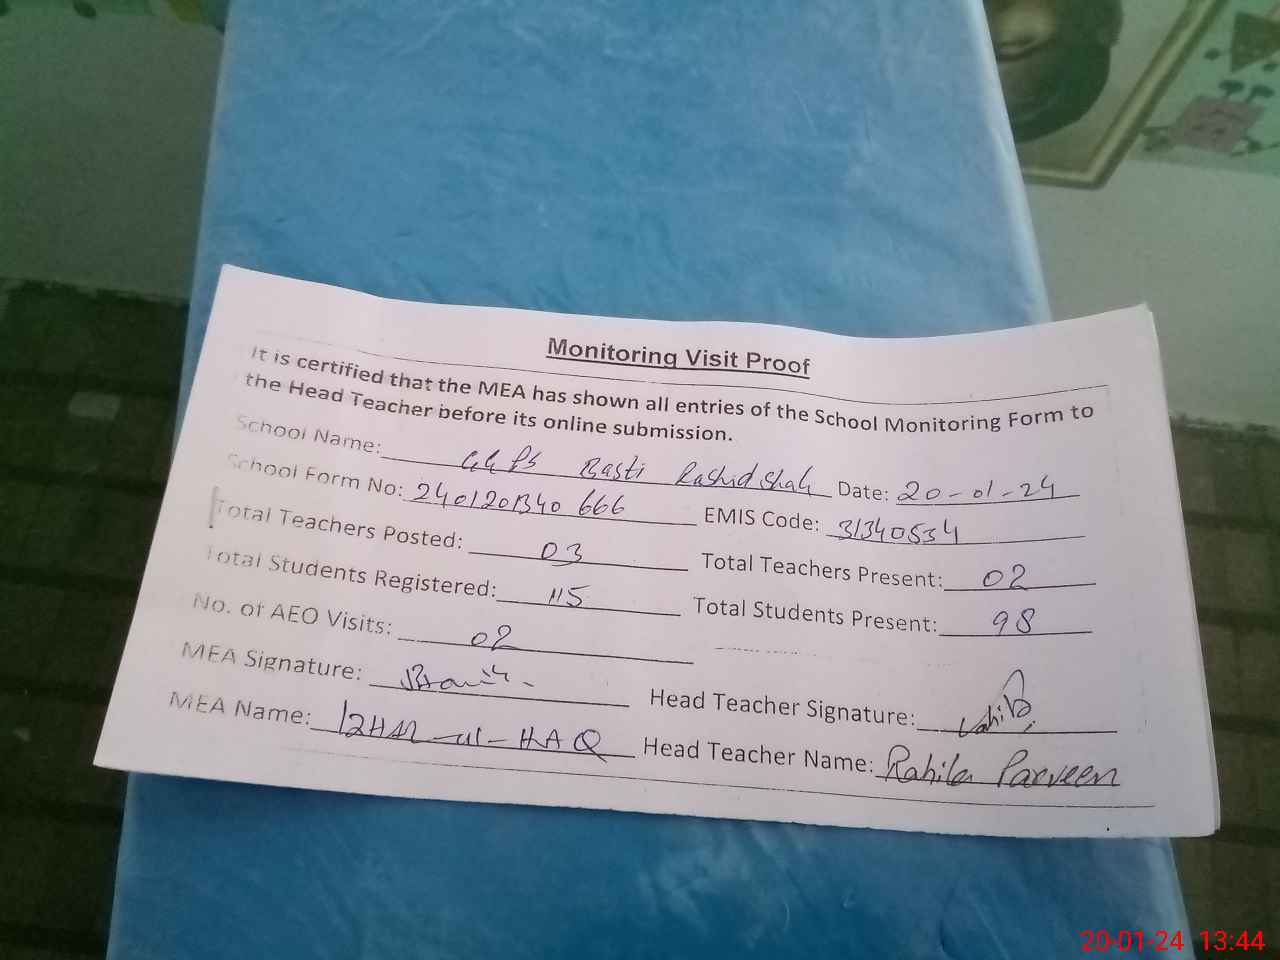 Monitoring Visit Proof
It is certified that the MEA has shown all entries of the School Monitoring Form to
the Head Teacher before its online submission.
School Name: GGPS Basti Rashid Shah Date: 20-01-24
School Form No: 2401201340 666 EMIS Code: 31340534
Total Teachers Posted: 03 Total Teachers Present: 02
Total Students Registered: 115 Total Students Present: 98
No. of AEO Visits: 02
MEA Signature: Head Teacher Signature:
MEA Name: IZHAR-ul-HAQ Head Teacher Name: Rahila Parveen
20-01-24 13:44